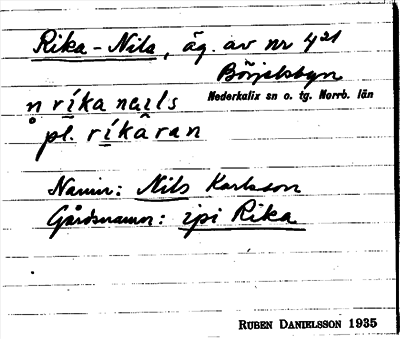 Rika-Nils, äg. av nr 4²¹
Börjelsbyn
Nederkalix sn o. tg. Norrb. län
n ríka nails
pl. ríkâran
Namn: Nils Karlsson
Gårdsnamn: ipi Rika
RUBEN DANIELSSON 1935